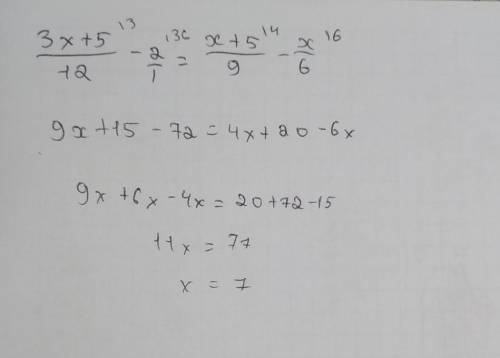 (3x+5)/12 ^|3 - 2/1 ^|36 = (x+5)/9 ^|4 - x/6 ^|6
9x+15 - 72 = 4x+20 - 6x
9x + 6x - 4x = 20+72-15
11x = 77
x = 7